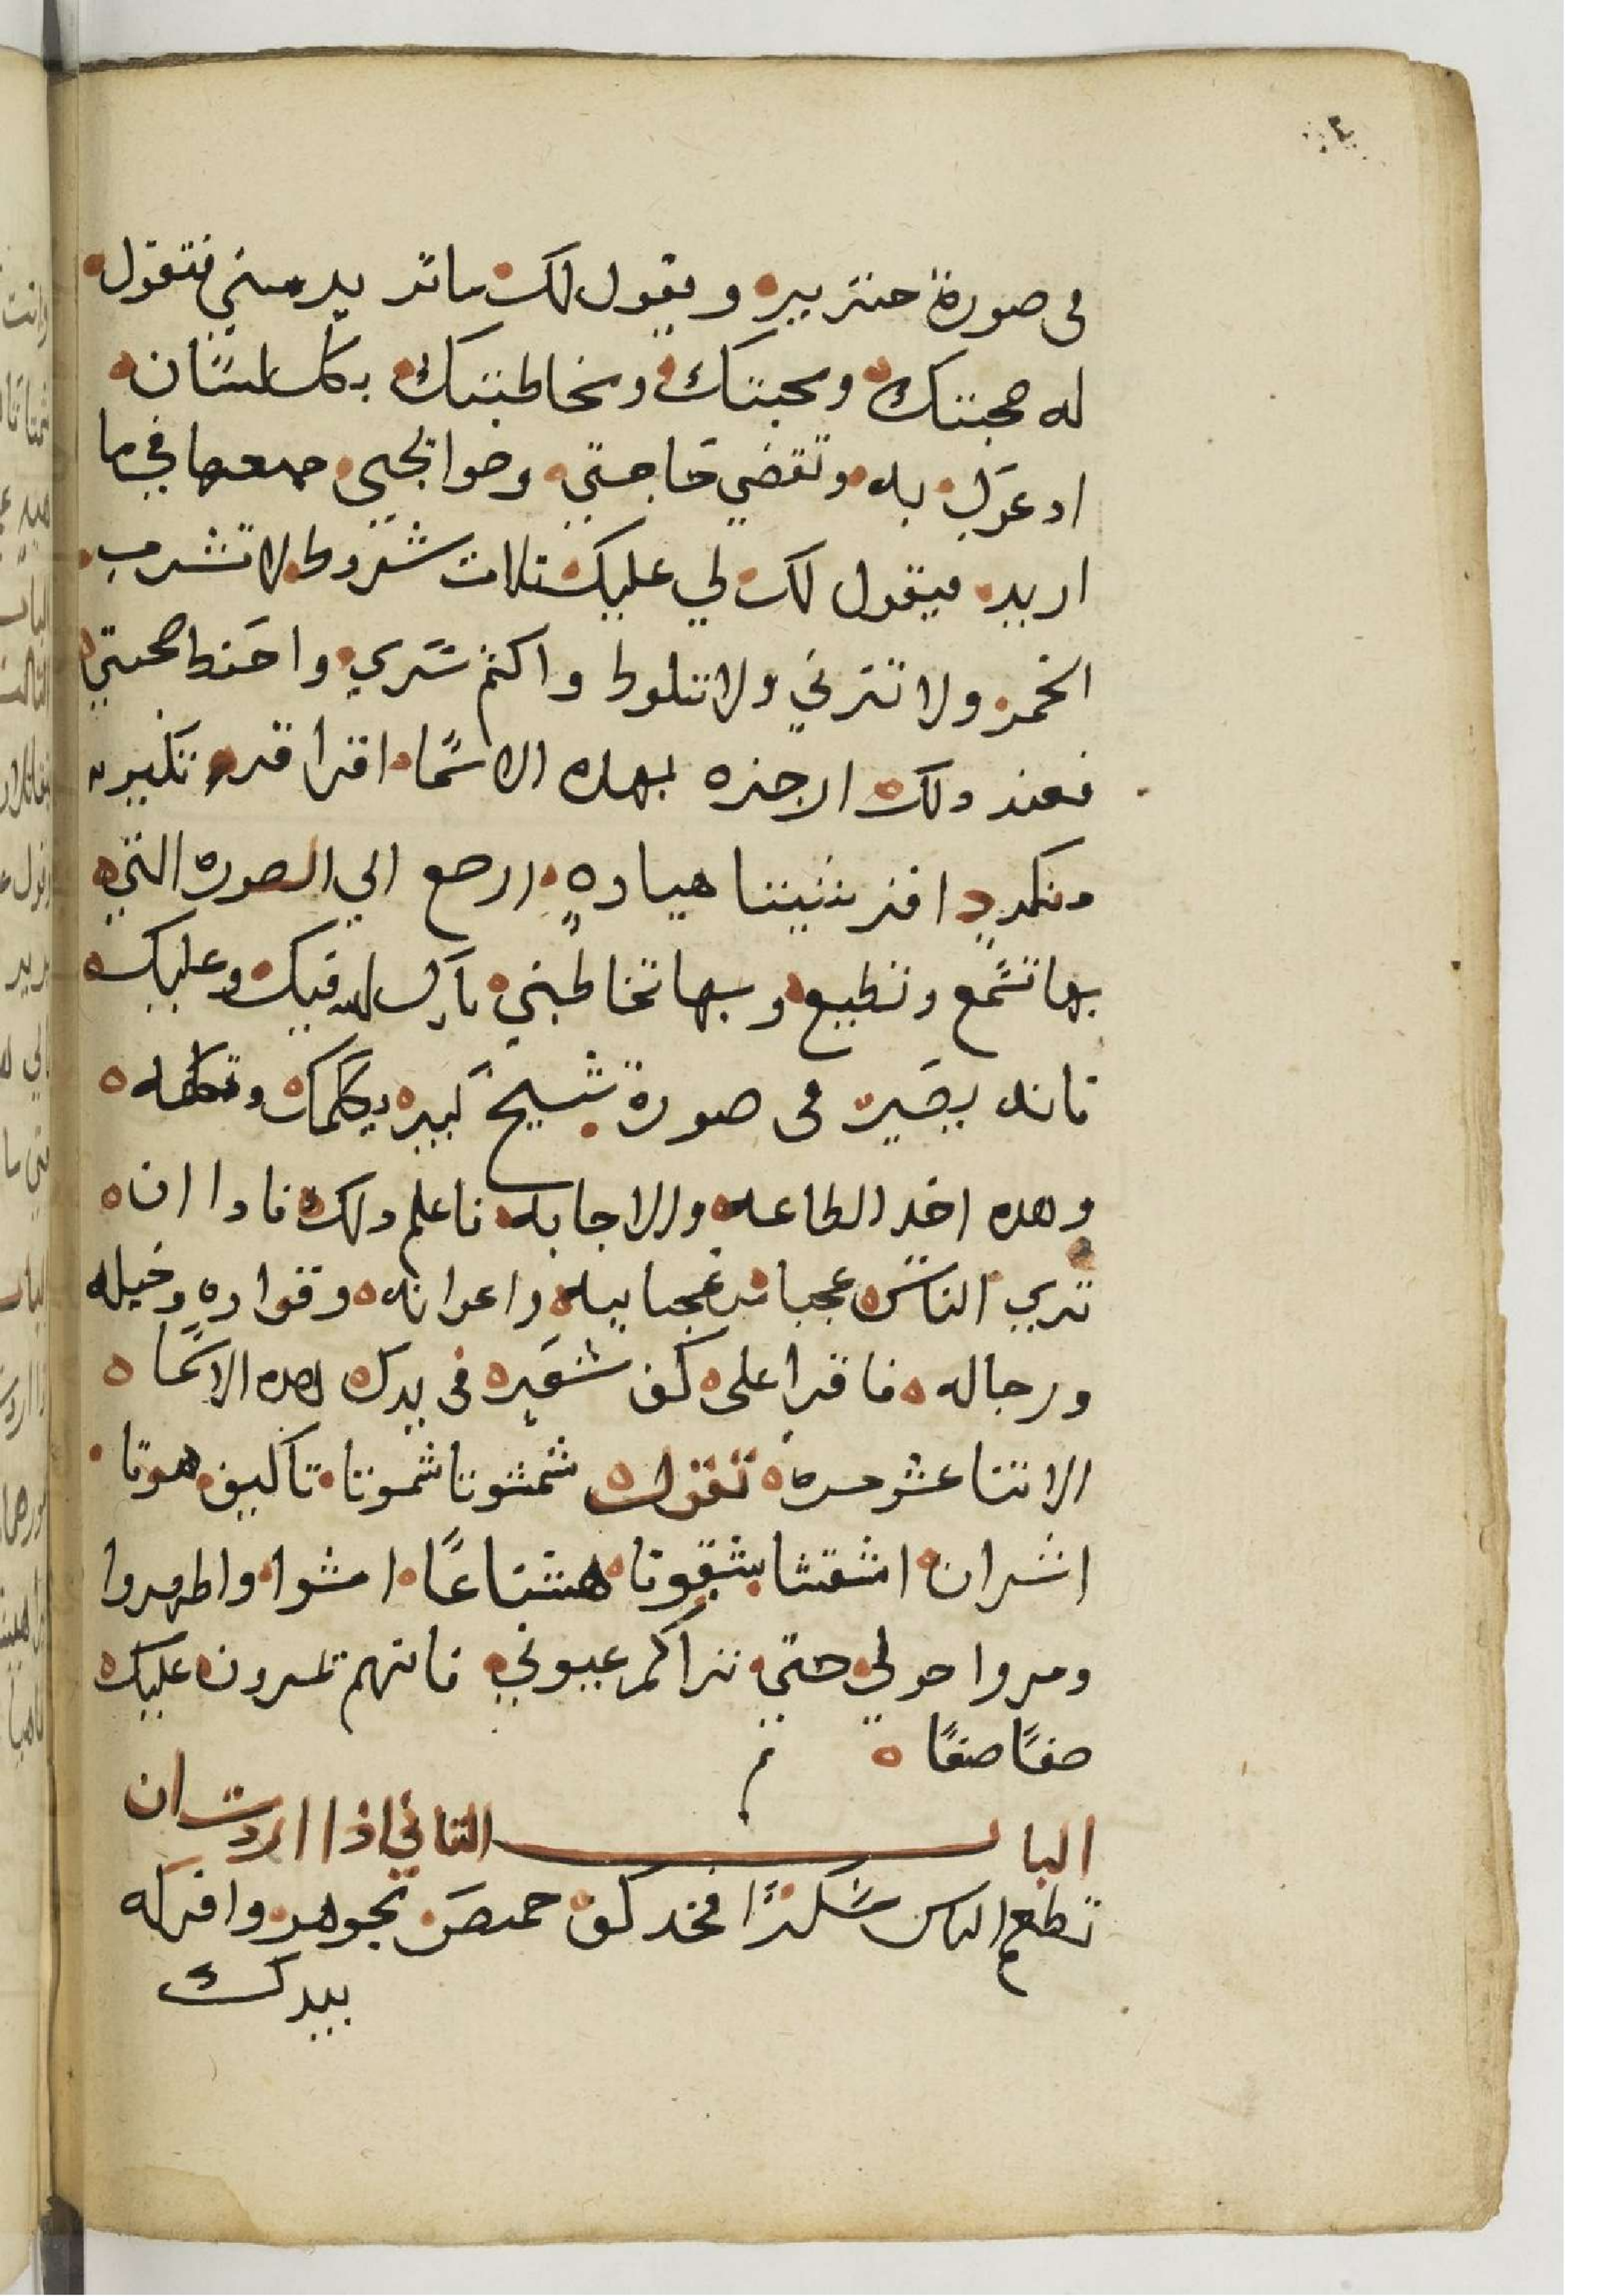 في صورة خنزير ويقول لك ما تريد مني فتقول
له صحبتك ومحبتك ومخاطبتك بكل لسان
ادعوك به وتقضي حاجتي وحوايجي جميعها في ما
اريد فيقول لك لي عليك تلات شروط لا تشرب
الخمر ولا تزني ولا تلوط واكتم سري واحفظ صحبتي
فعند دلك ازجره بهده الاسما اقرا قدر تكبير
منكرد هياده ارجع الي الصوره التي
بها تسمع وتطيع وبها تخاطبني بارك الله فيك وعليك
فانه يصير في صورة شيخ كبير ويكلمك وتكلمه
وهده اخد الطاعه والاجابه فاعلم دلك فادا ان
تري الناس عجبا من عجايبه واعوانه وقواده وخيله
ورجاله فاقرا على كف شعير في يدك هده الاسما
الاتنا عشر مره تقول شمتوتا شموتا تاكليف هوتا
اشران اشقشا بشقوتا هشتاعًا امشوا واظهروا
ومروا حولي حتي تراكم عيوني فانهم يمرون عليك
صفًا صفًا
الباب التاني اذا اردت ان
تطعم الناس سكرًا فخد كف حمص بجوهر وافركه
بيدك